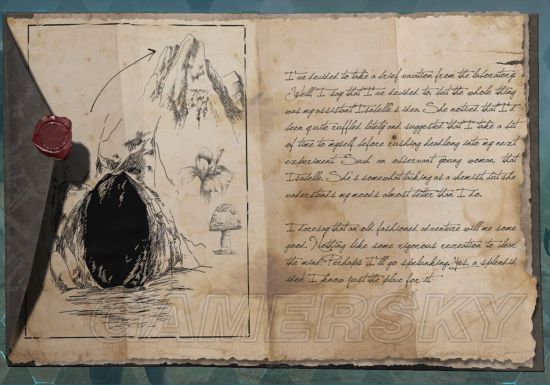 I've decided to take a brief vacation from the laboratory.
Well, I say that I've decided to, but the whole thing
was my assistant Isabelle's idea. She noticed that I'd
been quite ruffled lately and suggested that I take a bit
of time to myself before rushing headlong into my next
experiment. Such an observant young woman, that
Isabelle. She's somewhat lacking as a chemist, but she
understands my moods almost better than I do.
I daresay that an old fashioned adventure will me some
good. Nothing like some rigorous recreation to clear
the mind. Perhaps I'll go spelunking. Yes, a splendid
idea! I know just the place for it.
GAMERSKY